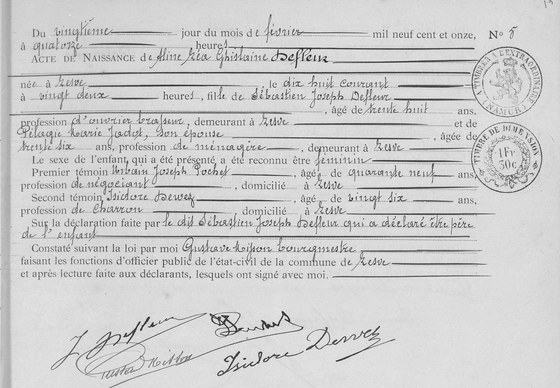 Du vingtième jour du mois de février mil neuf cent et onze, N° 8
à quatorze heures
ACTE DE NAISSANCE de Aline Léa Ghislaine Defleur
née à Lesve, le dix huit courant
à vingt deux heures, fille de Sébastien Joseph Defleur
, âgé de trente huit ans,
profession d'ouvrier brasseur, demeurant à Lesve et de
Pélagie Marie Jadot, son épouse, âgée de
trente six ans, profession de ménagère, demeurant à Lesve
Le sexe de l'enfant, qui a été présenté, a été reconnu être féminin
Premier témoin Urbain Joseph Pochet, âgé de quarante neuf ans,
profession de négociant, domicilié à Lesve
Second témoin Isidore Dewez, âgé de vingt six ans,
profession de Charron, domicilié à Lesve
Sur la déclaration faite par le dit Sébastien Joseph Defleur qui a déclaré être père
de l'enfant
Constaté suivant la loi par moi Gustave bourgmestre
faisant les fonctions d'officier public de l'état-civil de la commune de Lesve
et après lecture faite aux déclarants, lesquels ont signé avec moi.
TIMBRE EXTRAORDINAIRE
NAMUR
TIMBRE DE DIMENSION
1 Fr
50c
Defleur
Isidore Dewez